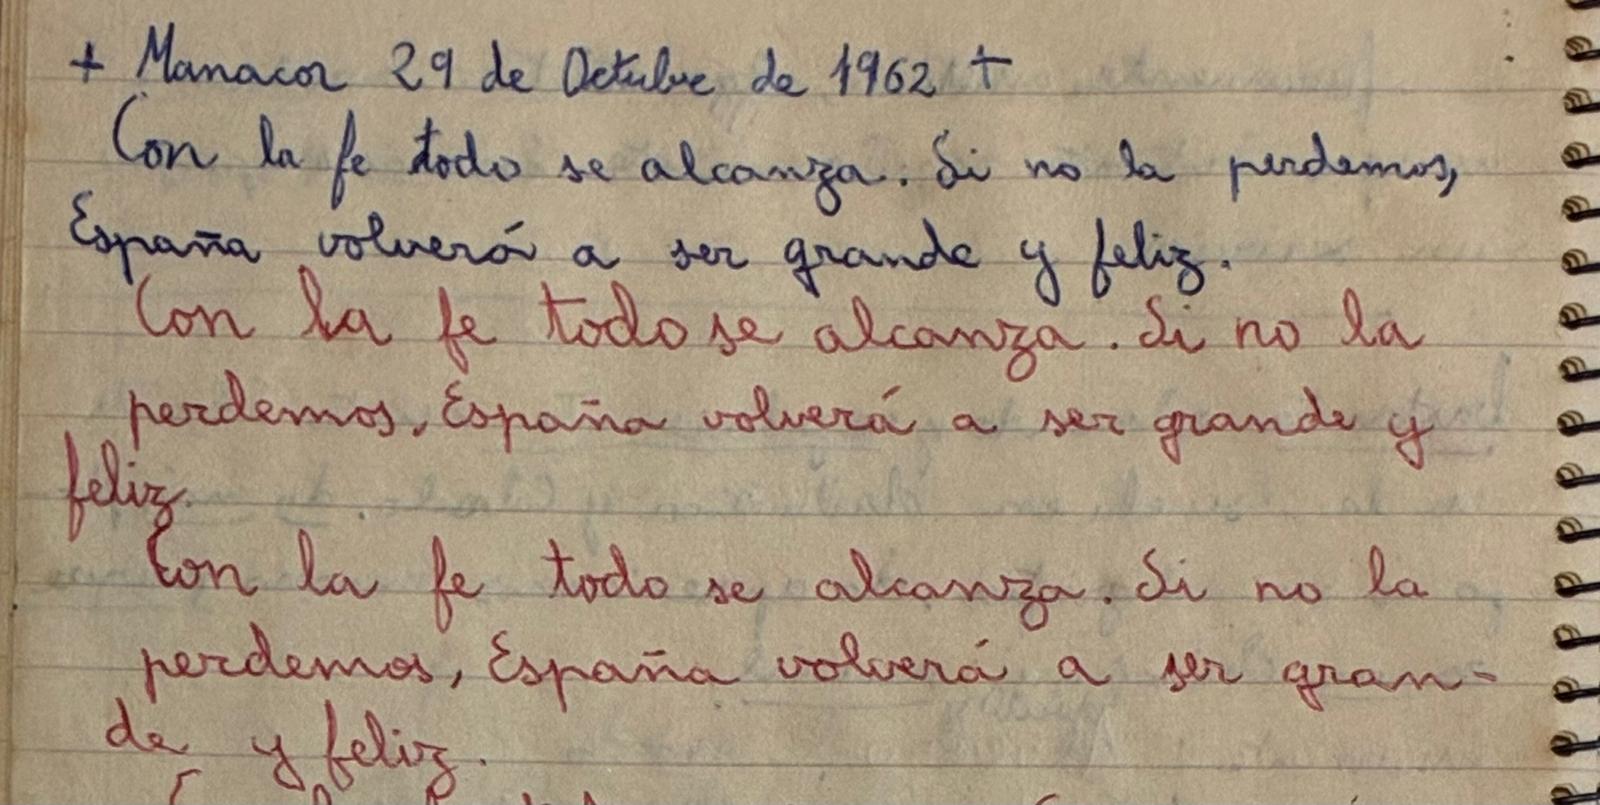 + Manacor 29 de Octubre de 1962 +
Con la fe todo se alcanza. Si no la perdemos,
España volverá a ser grande y feliz.
Con la fe todo se alcanza. Si no la
perdemos, España volverá a ser grande y
feliz.
Con la fe todo se alcanza. Si no la
perdemos, España volverá a ser gran-
de y feliz.